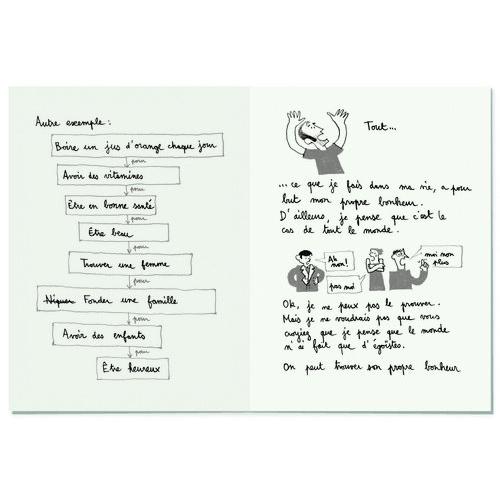 Autre exemple :
Boire un jus d'orange chaque jour
pour
Avoir des vitamines
pour
Être en bonne santé
pour
Être beau
pour
Trouver une femme
pour
Niquer Fonder une famille
pour
Avoir des enfants
pour
Être heureux
Tout...
...ce que je fais dans ma vie, a pour
but mon propre bonheur.
D'ailleurs, je pense que c'est le
cas de tout le monde.
Ah
non !
pas moi
moi non
plus
Ok, je ne peux pas le prouver.
Mais je ne voudrais pas que vous
croyiez que je pense que le monde
n'ai fait que d'égoïstes.
On peut trouver son propre bonheur